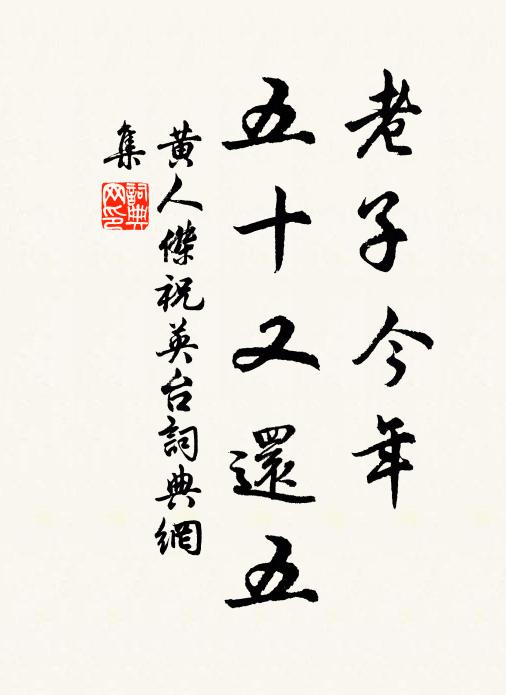 老子今年
五十又還五
黃人傑祝英台詞典網
集
詞典網印